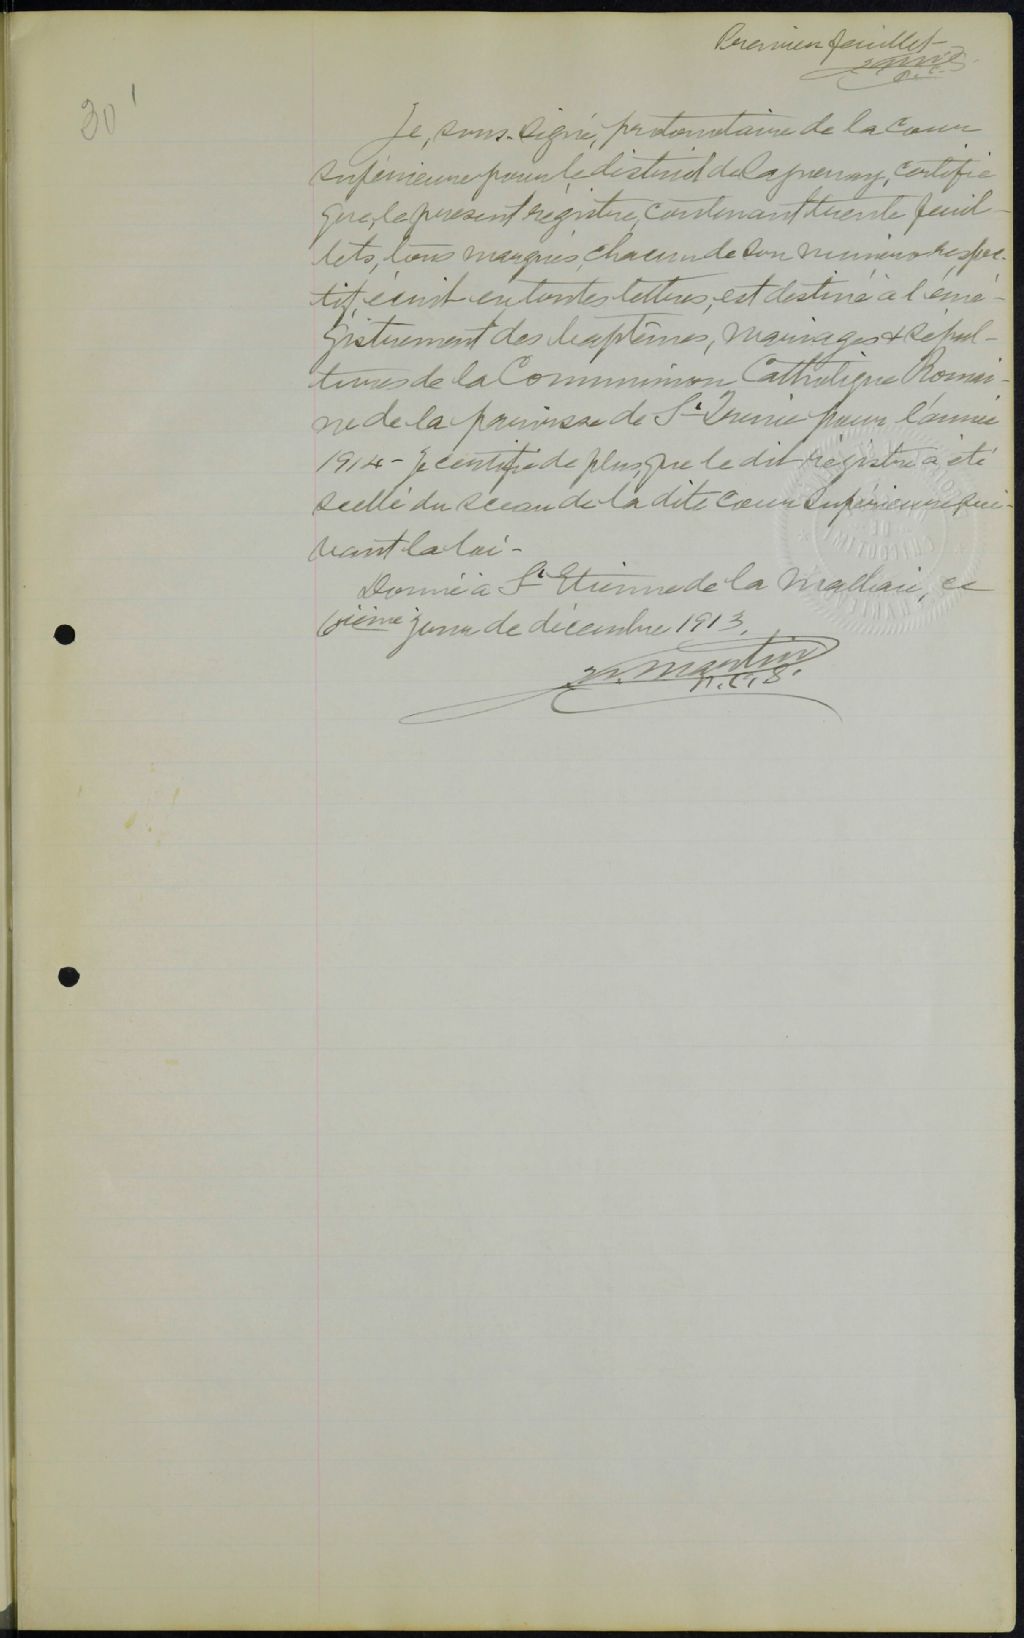 Premier feuillet
30 1
Je, sous-signé, protonotaire de la cour
supérieure pour le district de Saguenay, certifie
que, le présent registre, contenant trente feuil-
lets, tous marqués, chacun de son numéro respec-
tif, écrit en toutes lettres, est destiné à l'enré-
gistrement des baptêmes, mariages & sépul-
tures de la Communion Catholique Romai-
ne de la paroisse de St Irénée pour l'année
1914 - Je certifie de plus, que le dit régistre a été
scellé du sceau de la dite cour supérieure sui-
vant la loi -
Donné à St Etienne de la Malbaie, ce
6ième jour de décembre 1913.
Martin
P.C.S.